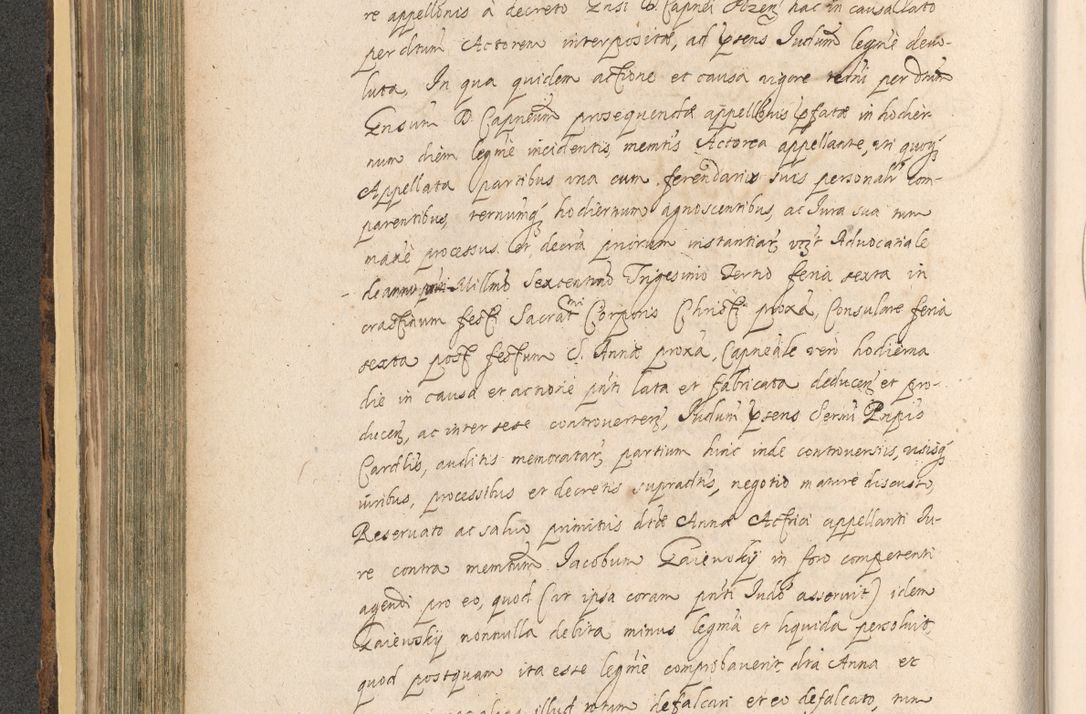 re appellonis à decreto Ensi D. Capnei Olzen hac in causa lato
per dtum Actorem interposita, ad psens Iudium legmè devo-
luta, In qua quidem actione et causa vigore termi per dnm
Ensum D. Capneum prosequendæ appellonis pfatæ in hodier
num diem legmè incidentis, memtis Actorea appellante, eti quoq
Appellata partibus una cum ferendariis suis personalr com-
parentibus, terminumq hodiernum agnoscentibus, ac Iura sua tum
nanè processus et decra priorum instantiar, vizt Advocatiale
de anno Millmo Sexcentmo Trigesimo Tertio feria sexta in
crastinum festi Sacratmi Corporis Christi proxa, Consulare feria
sexta post festum S. Annæ proxa, Capneale vero hodierna
die in causa et actione pnti lata et fabricata deducen et pro-
ducen, ac inter sese controverten, Iudium psens Sermi Pnpis
Cardlis, auditis memoratar partium hinc inde controversiis, visisq
iuribus, processibus et decretis supradtis, negotio mature discusso,
Reservato ac salvo primitus dtæ Annæ Actrici appellanti Iu-
re contra memtum Iacobum Gaievsky in foro competenti
agendi pro eo, quod (ut ipsa coram pnti Iudo asseruit) idem
Gaievsky nonnulla debita minus legma et liquida persolvit,
quod postquam ita esse legmè comprobaverit dta Anna et
illud totum defalcari et eo defalcato, tum